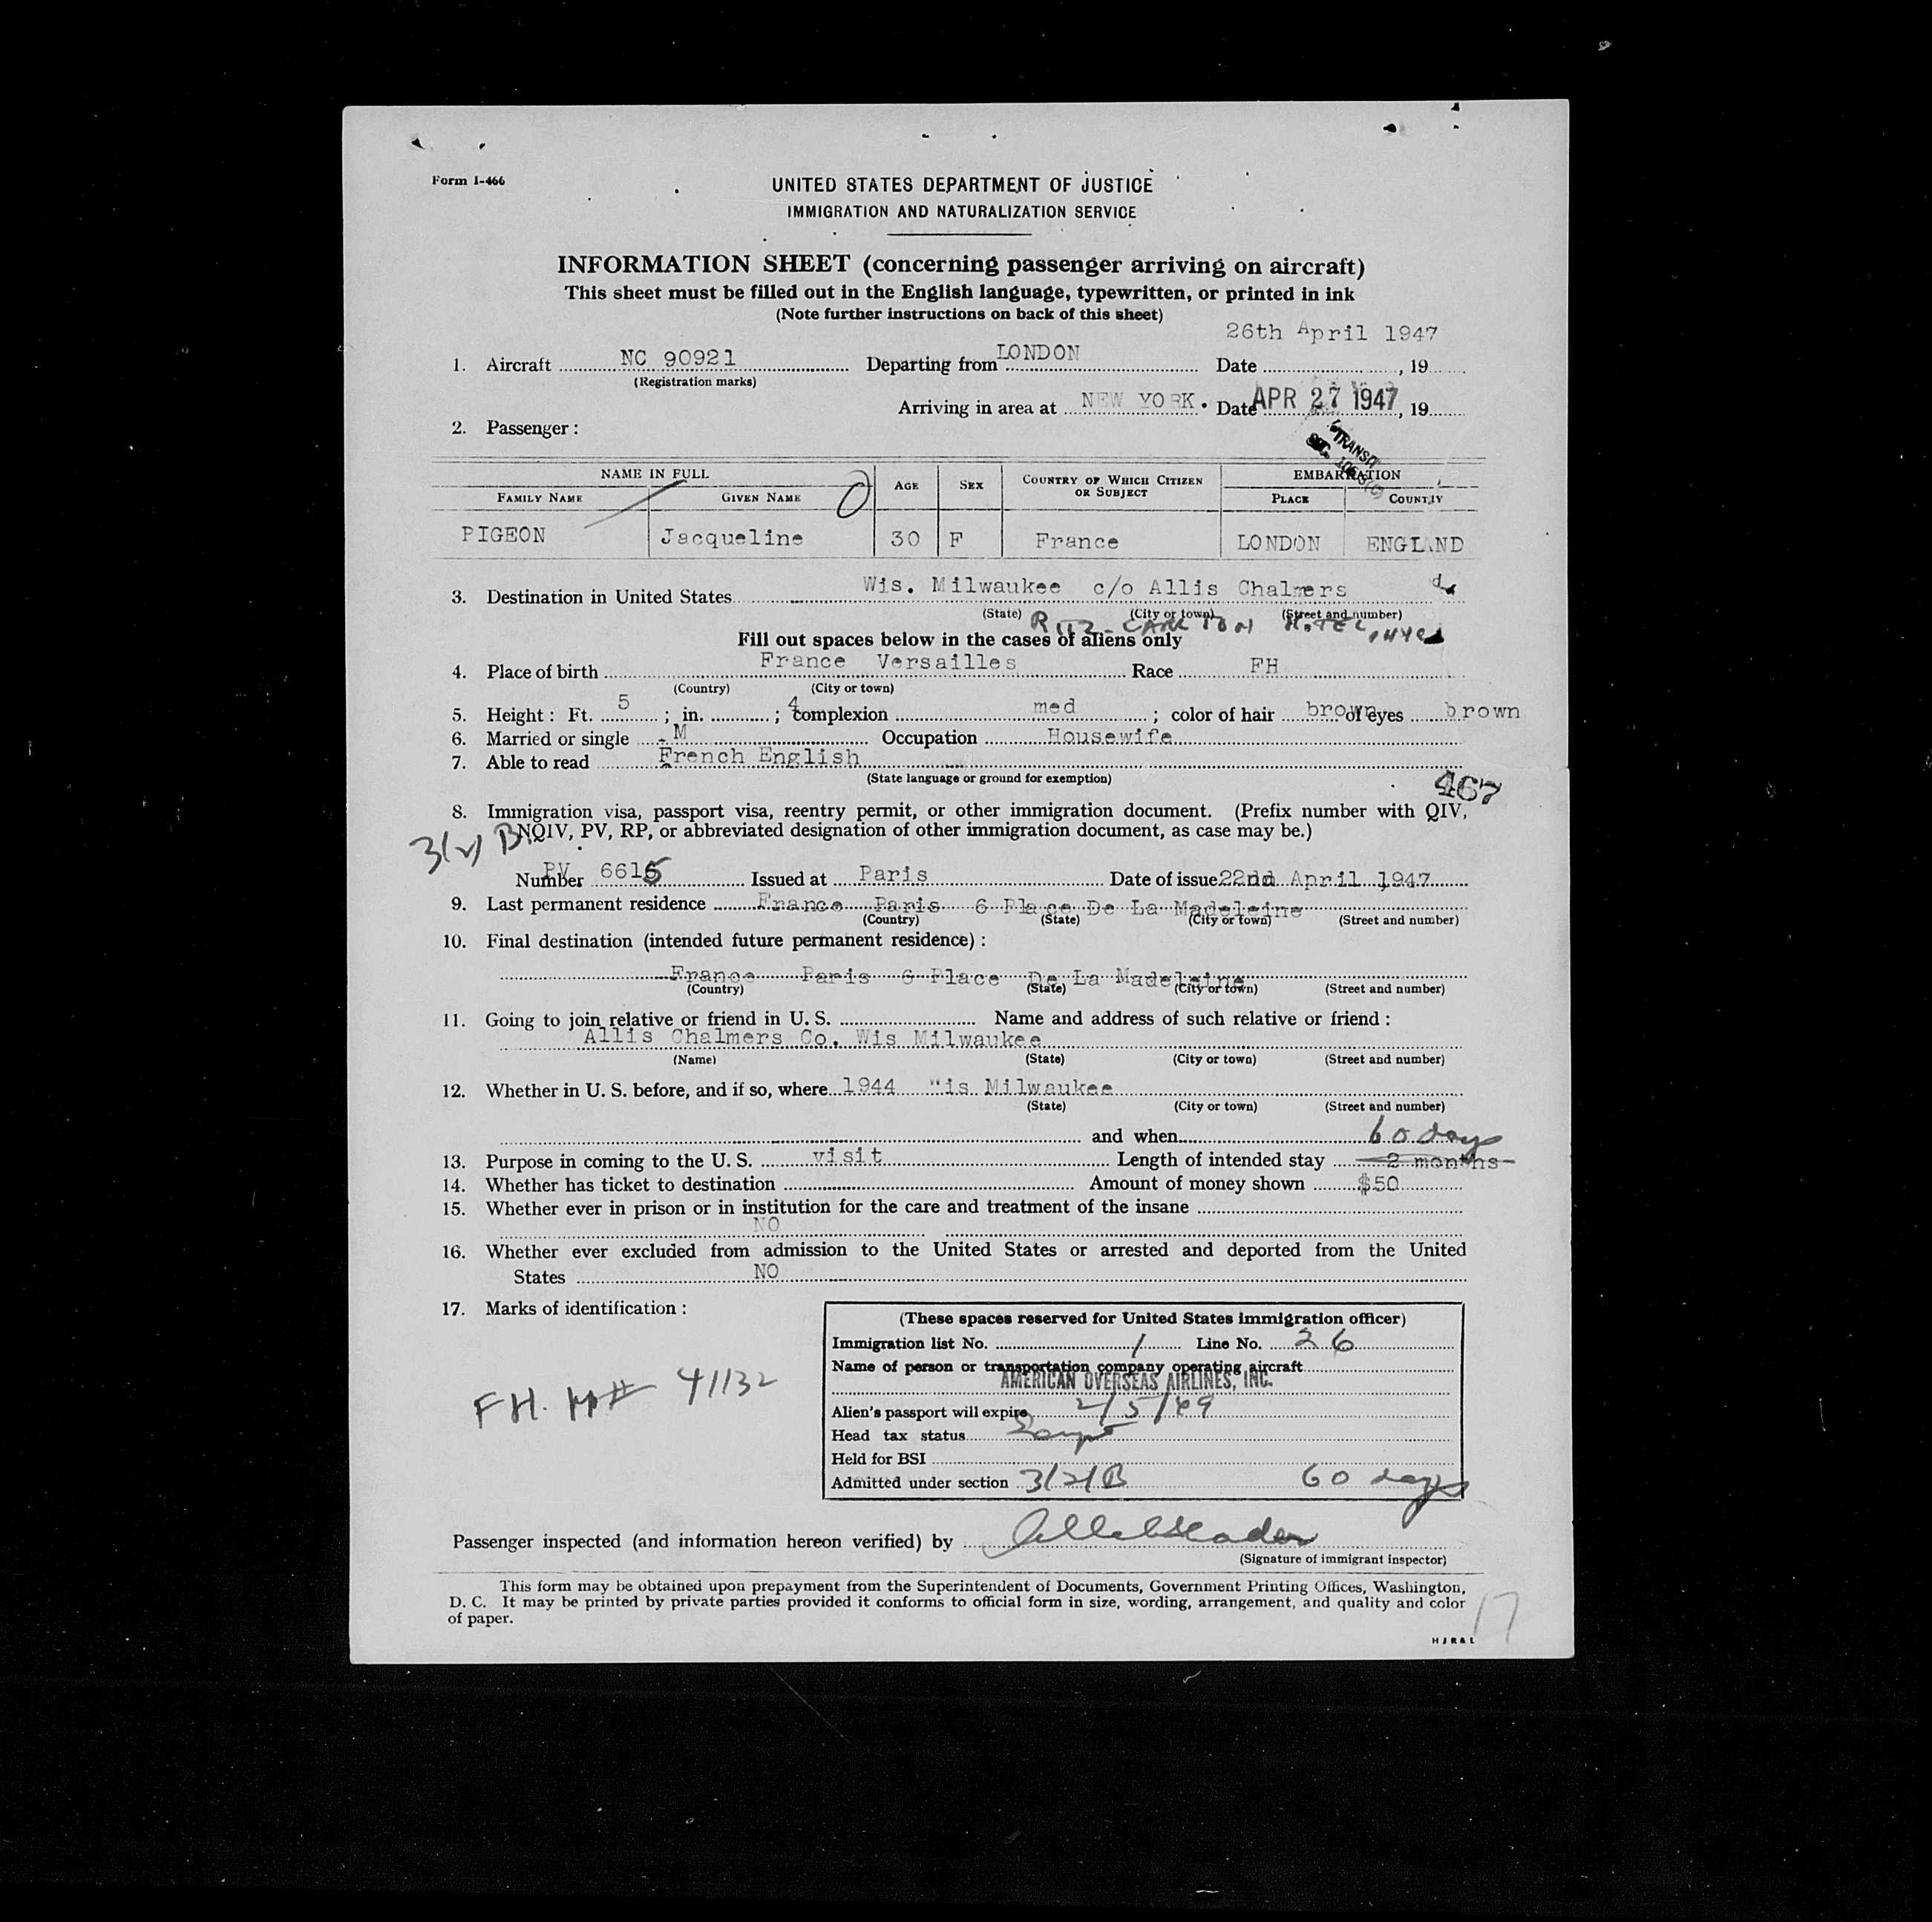 Form I-466
UNITED STATES DEPARTMENT OF JUSTICE
IMMIGRATION AND NATURALIZATION SERVICE
INFORMATION SHEET (concerning passenger arriving on aircraft)
This sheet must be filled out in the English language, typewritten, or printed in ink
(Note further instructions on back of this sheet)
26th April 1947
1. Aircraft NC 90921 Departing from LONDON Date , 19
(Registration marks)
Arriving in area at NEW YORK. Date APR 27 1947, 19
2. Passenger :
TRANSIT
NAME IN FULL AGE SEX COUNTRY OF WHICH CITIZEN OR SUBJECT EMBARKATION
FAMILY NAME GIVEN NAME PLACE COUNTRY
PIGEON Jacqueline 30 F France LONDON ENGLAND
3. Destination in United States Wis. Milwaukee c/o Allis Chalmers
(State) (City or town) (Street and number)
RITZ-CARLTON HOTEL, NYC
Fill out spaces below in the cases of aliens only
4. Place of birth France Versailles Race FH
(Country) (City or town)
5. Height : Ft. 5 ; in. 4 ; complexion med ; color of hair brown of eyes brown
6. Married or single M Occupation Housewife
7. Able to read French English
(State language or ground for exemption)
467
8. Immigration visa, passport visa, reentry permit, or other immigration document. (Prefix number with QIV,
NQIV, PV, RP, or abbreviated designation of other immigration document, as case may be.)
3(2) B
Number PV 6615 Issued at Paris Date of issue 22nd April 1947
9. Last permanent residence France Paris 6 Place De La Madeleine
(Country) (State) (City or town) (Street and number)
10. Final destination (intended future permanent residence) :
France Paris 6 Place De La Madeleine
(Country) (State) (City or town) (Street and number)
11. Going to join relative or friend in U. S. Name and address of such relative or friend :
Allis Chalmers Co. Wis Milwaukee
(Name) (State) (City or town) (Street and number)
12. Whether in U. S. before, and if so, where 1944 Wis Milwaukee
(State) (City or town) (Street and number)
and when 60 days
13. Purpose in coming to the U. S. visit Length of intended stay 2 months
14. Whether has ticket to destination Amount of money shown $50
15. Whether ever in prison or in institution for the care and treatment of the insane
NO
16. Whether ever excluded from admission to the United States or arrested and deported from the United
States NO
17. Marks of identification :
(These spaces reserved for United States immigration officer)
Immigration list No. 1 Line No. 26
Name of person or transportation company operating aircraft
AMERICAN OVERSEAS AIRLINES, INC.
FH. 41132
Alien's passport will expire 2/5/49
Head tax status
Held for BSI
Admitted under section 3/2/B 60 days
Passenger inspected (and information hereon verified) by
(Signature of immigrant inspector)
This form may be obtained upon prepayment from the Superintendent of Documents, Government Printing Offices, Washington,
D. C. It may be printed by private parties provided it conforms to official form in size, wording, arrangement, and quality and color
of paper.
17
H J R & L